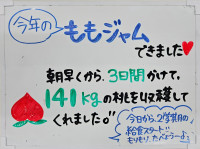 今年の
ももジャム
できました♥
朝早くから、3日間かけて、
141kgの桃を収穫して
くれました。
今日から、2学期の
給食スタート
もりもり、たべよう〜♪